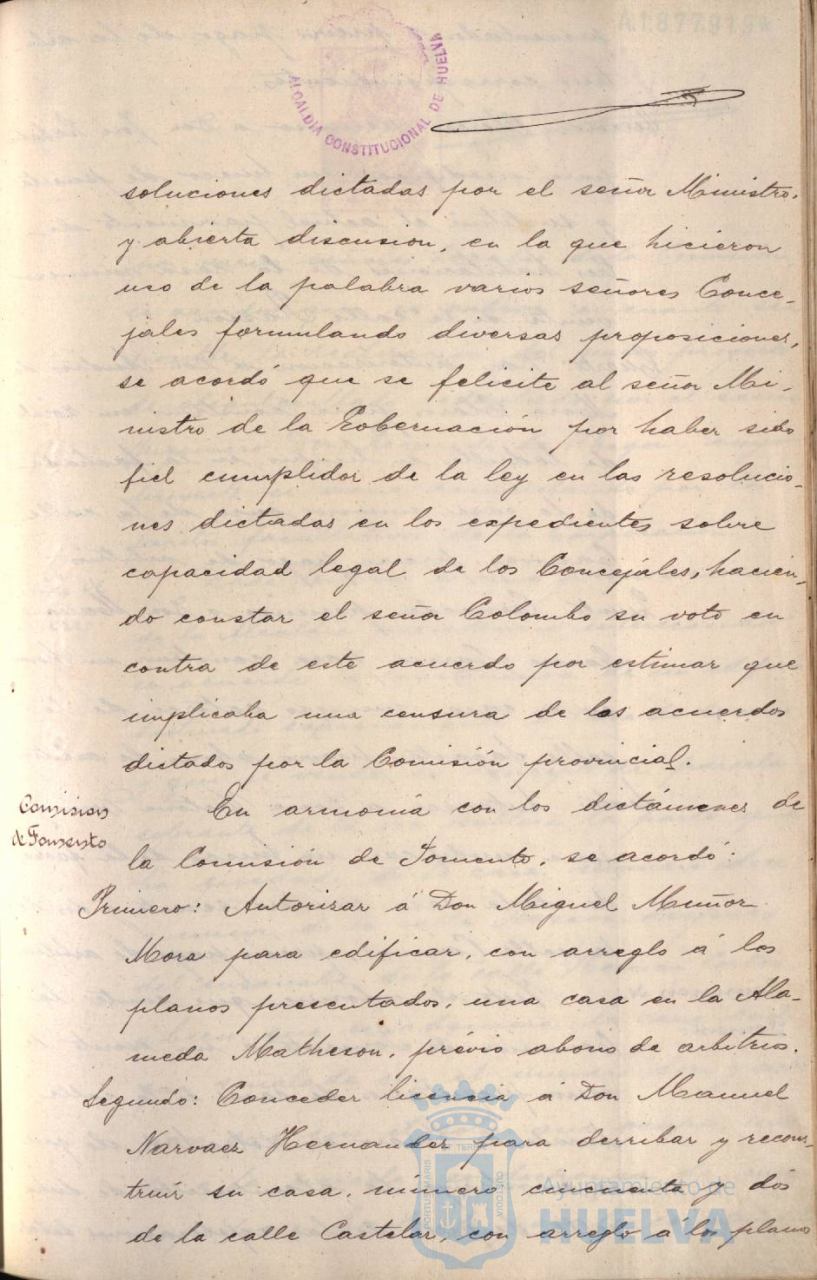 A1877919*
ALCALDIA CONSTITUCIONAL DE HUELVA
soluciones dictadas por el señor Ministro,
y abierta discusion, en la que hicieron
uso de la palabra varios señores Conce-
jales formulando diversas proposiciones,
se acordó que se felicite al señor Mi-
nistro de la Gobernación por haber sido
fiel cumplidor de la ley en las resolucio-
nes dictadas en los expedientes sobre
capacidad legal de los Concejales, hacien-
do constar el señor Colombo su voto en
contra de este acuerdo por estimar que
implicaba una censura de los acuerdos
dictados por la Comisión provincial.
Comision
de Fomento
En armonía con los dictámenes de
la Comisión de Fomento, se acordó:
Primero: Autorizar á Don Miguel Muñoz
Mora para edificar, con arreglo á los
planos presentados, una casa en la Ala-
meda Matheson, prévio abono de arbitrios.
Segundo: Conceder licencia á Don Manuel
Narvaez Hernandez para derribar y recons-
truir su casa, número cincuenta y dós
de la calle Castelar, con arreglo á los plano
PORTUS MARIS ET TERRAE CUSTODIA
Ayuntamiento de
HUELVA